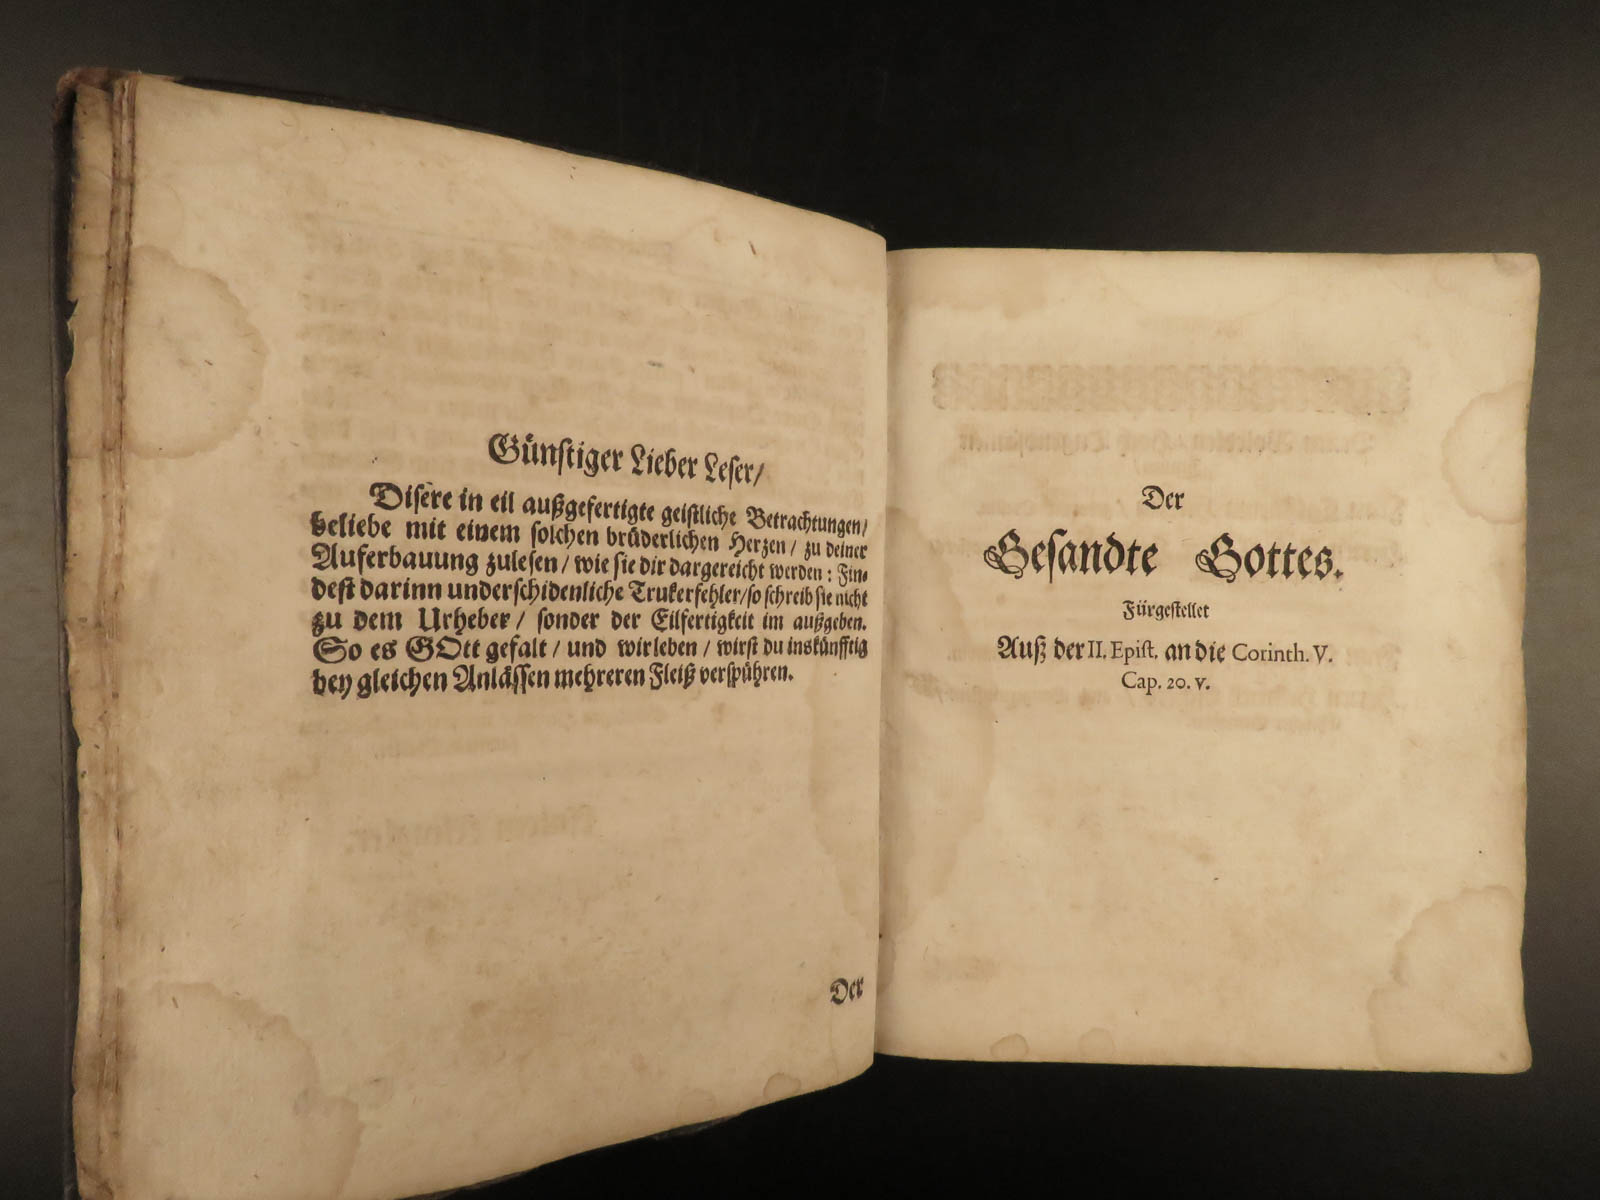 Günstiger Lieber Leser/
Disere in eil außgefertigte geistliche Betrachtungen/
beliebe mit einem solchen brüderlichen Herzen / zu deiner
Auferbauung zulesen / wie sie dir dargereicht werden : Fin-
dest darinn underschidenliche Trukerfehler/so schreib sie nicht
zu dem Urheber / sonder der Eilfertigkeit im außgeben.
So es GOtt gefalt / und wirleben / wirst du inskünfftig
bey gleichen Anlässen mehreren Fleiß verspühren.
Der
Der
Gesandte Gottes.
Fürgestellet
Auß der II. Epist. an die Corinth. V.
Cap. 20. v.